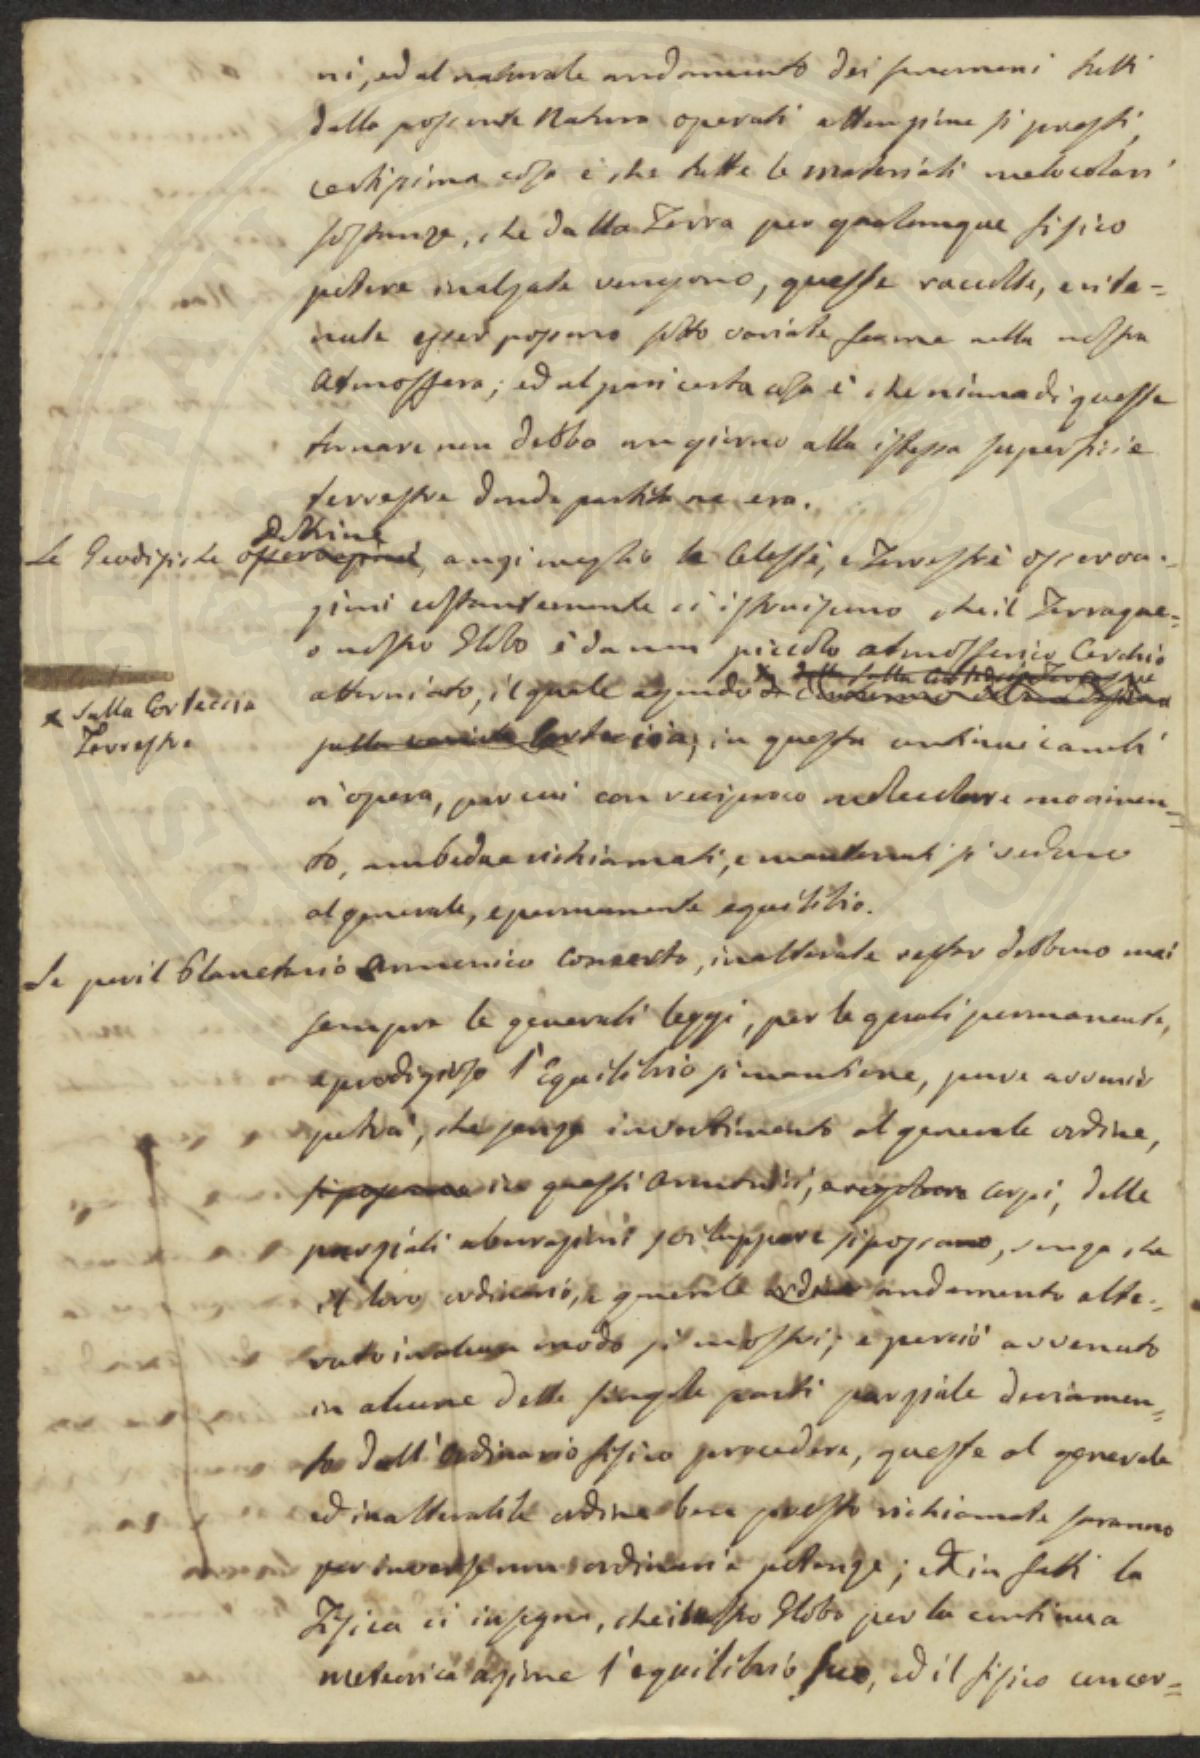 ni, ed al naturale andamento dei fenomeni tutti
dalla possente Natura operati attenzione si presti,
certissima cosa è che tutte le materiali molecolari
sostanze, che dalla Terra per qualunque fisico
potere inalzate vengono, queste raccolte, e rite=
nute esser possono sotto variate forme nella nostra
Atmosfera; ed al pari certa cosa è che niuna di queste
tornare non debba un giorno alla istessa superficie
terrestre donde partita ne era.
Dottrine
Le Geodisiche osservazioni, anzi meglio le Celesti, e Terrestri osserva=
zioni costantemente ci istruiscono che il Terraque=
o nostro Globo è da un piccolo atmosferico Cerchio
attorniato, il quale agendo
x sulla Corteccia
Terrestre
sulla Corteccia, in questa continui cambi
vi opera, per cui con reciproco molecolare movimen=
to, ambedue richiamati, e mantenuti si vedono
al generale, e permanente equilibrio.
Se per il Planetario armonico Concerto, inalterate restar debbono mai
sempre le generali leggi, per le quali permanente,
e prodigioso l'Equilibrio si mantiene, pure avvenir
potrà, che senza invertimento al generale ordine,
si possono in questi corpi, delle
parziali aberrazioni sviluppare si possano, senza che
il loro ordinario, e generale ordine andamento alte=
rato in alcun modo si mostri; e perciò avvenuto
in alcune delle singole parti parziale deviamen=
to dall'ordinario fisico procedere, queste al generale
ed inalterabile ordine ben presto richiamate saranno
per inverse non ordinarie potenze; ed in fatti la
Fisica ci insegna, che il nostro Globo per la continua
meteorica azione l'equilibrio suo, ed il fisico concer=